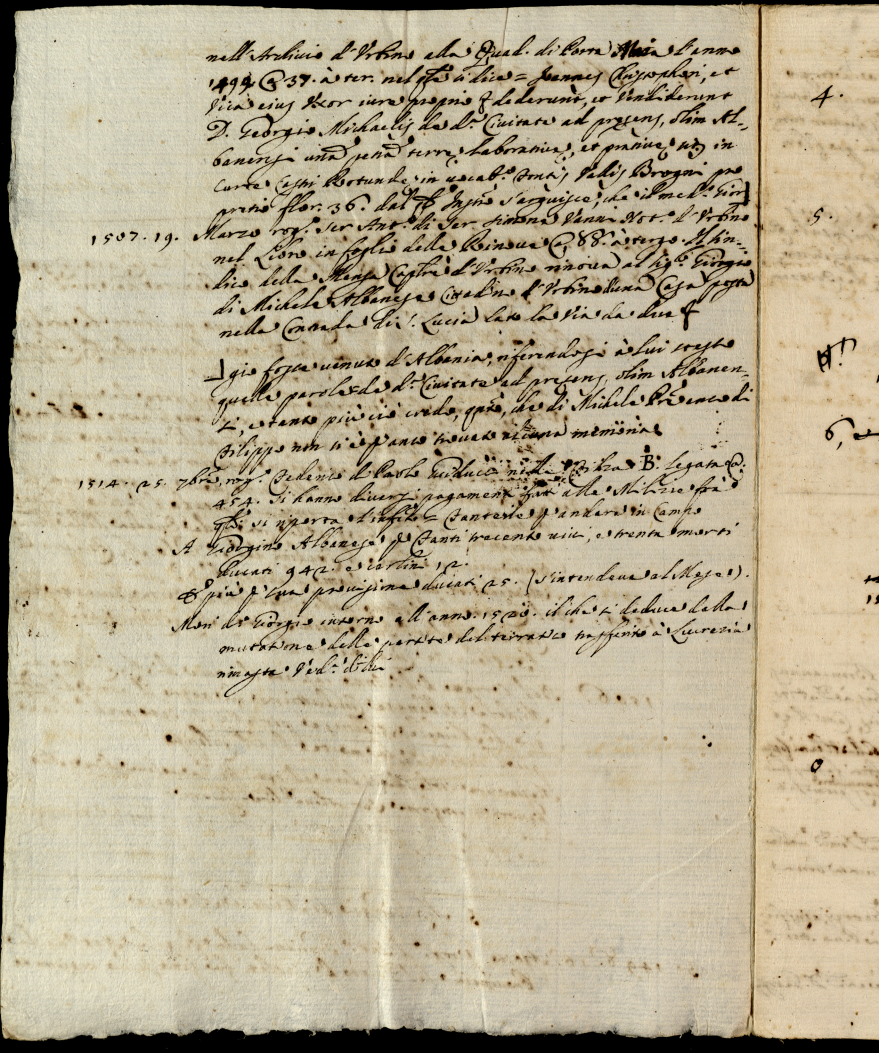 nell'Archivio d'Urbino alla Quad. di Porta Maia l'anno
1499 C. 37. à ter. nel qle si dice = Joannes Christophori, et
Vica eius Uxor iure proprio dederunt, et Vendiderunt
D. Georgio Michaelis de d.a Civitate ad presens, olim Al-
banensi una petia terre laborative, et prative in
Curte Castri Rotunde in vocab.o Fontis Vallis Brogni pro
pretio flor. 36. dal s'arguisce, che il med.o Gior
1507. 19. Marzo rog. Ser Ant.o di Ser Simone Vanni Not.o d'Urbino
nel Libro in foglio delle Rinove C. 88. à tergo il Sin-
dico della Mensa Capitre d'Urbino rinova al Sig.r Giorgio
di Michele Albanese Cittadino d'Urbino d'una Casa posta
nella Contrada di S. Lucia lato la Via da due
gio fosse venuto d'Albania, riferendosi à lui stesso
quelle parole de d.a Civitate ad presens, olim Albanen-
si, e tanto più ciò credo, qto, che di Michele Pre anco di
Filippo non si è p anco trovato alcuna memoria
1514. 25. 7bre, rog. Federico di Paolo Guiducci nella Filza B. legata C.
454. Si hanno diversi pagamenti fatti alle Milizie frà
qli si riporta l'infto = Fanterie p andare in Campo
A Giorgino Albanese p Fanti trecento vivi, e trenta morti
ducati 942. e carlini 12.
& più p sua provisione ducati 25. (s'intendeva al Mese).
Morì d.o Giorgio intorno all'anno 152 . il che si deduce dalla
mutatione delle partite del terratico trasferito à Lucrezia
rimasta Ved.a di lui
4.
5.
6,
15
0